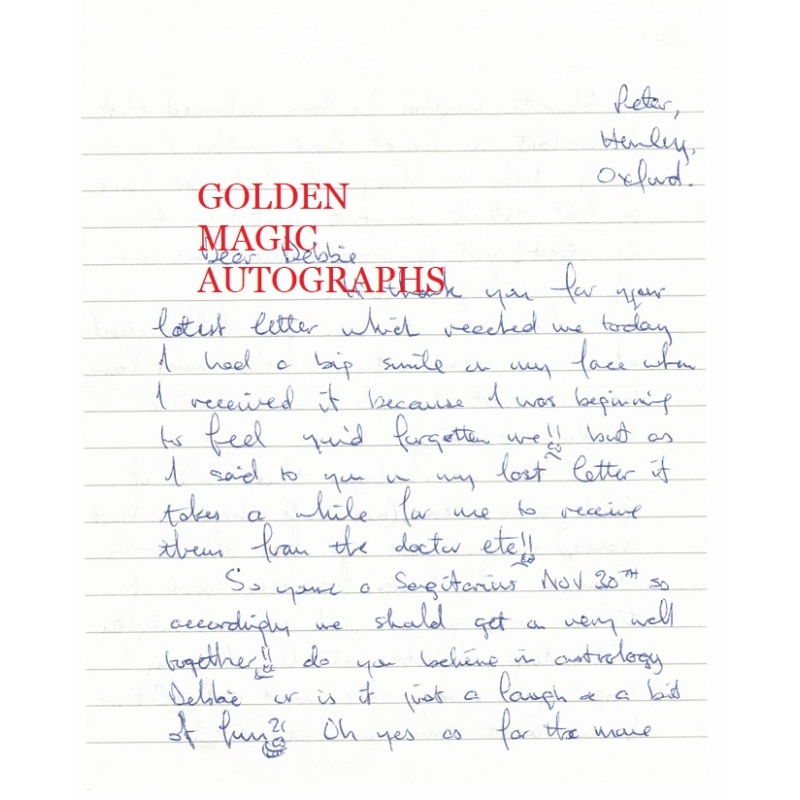 Peter,
Henley,
Oxford.
GOLDEN
MAGIC
AUTOGRAPHS
Dear Debbie
thank you for your
latest letter which reached me today
I had a big smile on my face when
I received it because I was beginning
to feel you'd forgotten me!! but as
I said to you in my last letter it
takes a while for me to receive
them from the doctor etc!!
So your a Sagitarius NOV 30TH so
accordingly we should get on very well
together!! do you believe in astrology
Debbie or is it just a laugh & a bit
of fun?! Oh yes as for the move